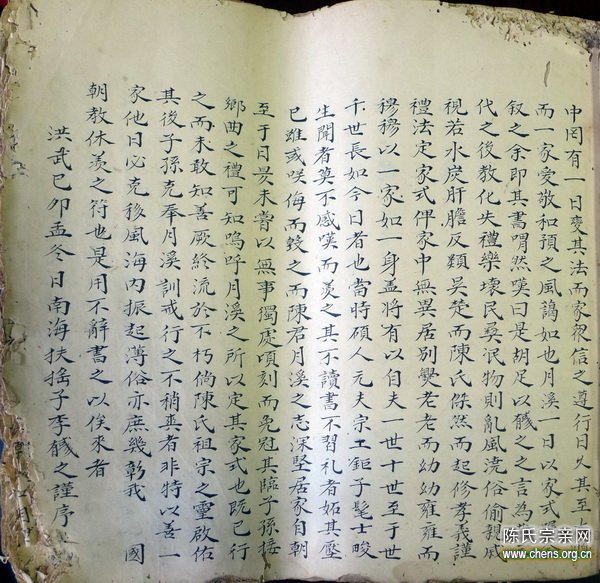 中罔有一日变其法而家衆信之遵行日久其至
而一家爱敬和预之風蔼如也月溪一日以家式
叙之余即其書喟然嘆曰是胡足以馘之之言為
代之後教化失禮樂壞民彛泯物则亂風浇俗偷親戚
視若水炭肝膽反類吴楚而陳氏傑然而起修孝義謹
禮法定家式伴家中無異居别爨老老而幼幼雍雍而
穆穆以一家如一身盖將有以自夫一世十世至于世
千世長如今日者也當時碩人元夫宗工鉅子髦士畯
生聞者莫不感嘆而羡之其不讀書不习礼者妬其壓
已雖或咲侮而毁之而陳君月溪之志深堅居家自朝
至于日昃未嘗以無事獨處頃刻而免冠其臨子孫接
鄉曲之禮可知嗚呼月溪之所以定其家式也既已行
之而未敢知善厥终流於不朽倘陳氏祖宗之靈啟佑
其後子孫克奉月溪訓戒行之不稍垂者非特以善一
家他日必克移風海内振起薄俗亦庶幾彰我 國
朝教休羡之符也是用不辭書之以俟來者
洪武己卯孟冬日南海扶摇子李馘之謹序
陈氏宗亲网
www.chens.org.cn